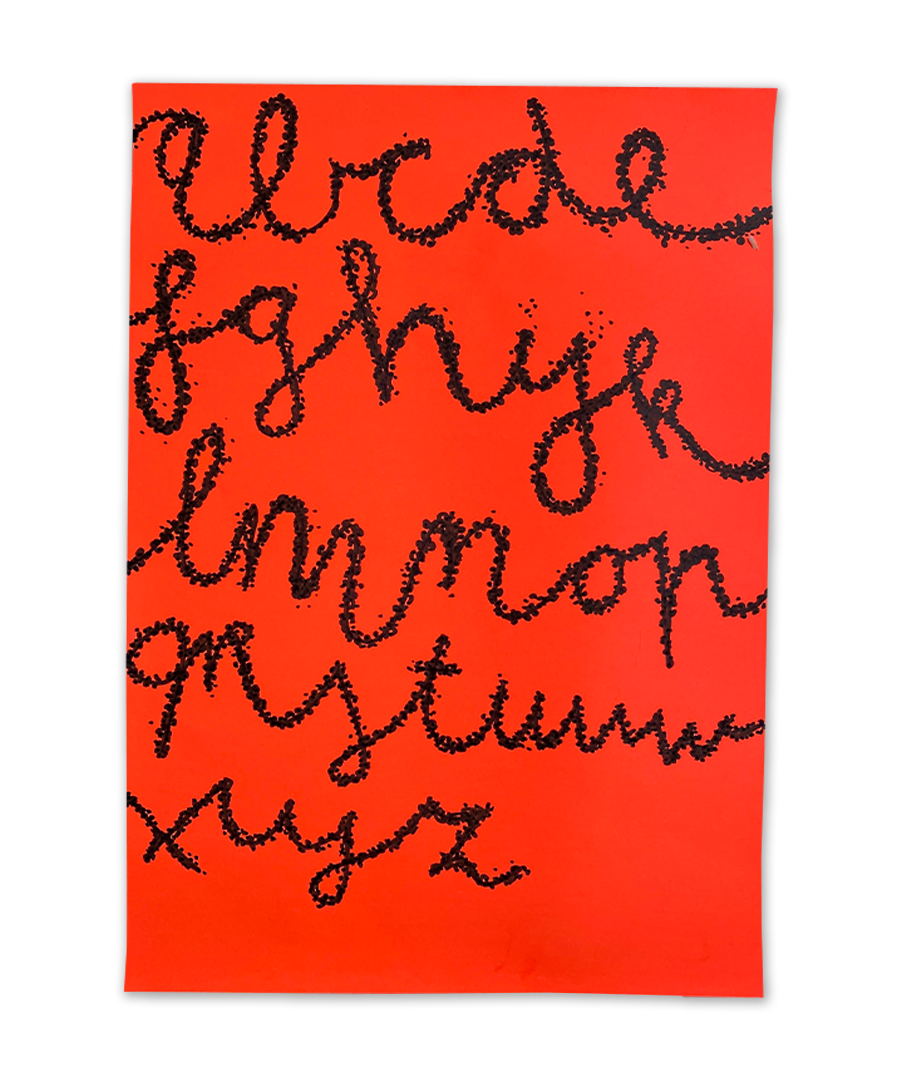 abcde
fghijk
lmnop
qrstuvw
xyz